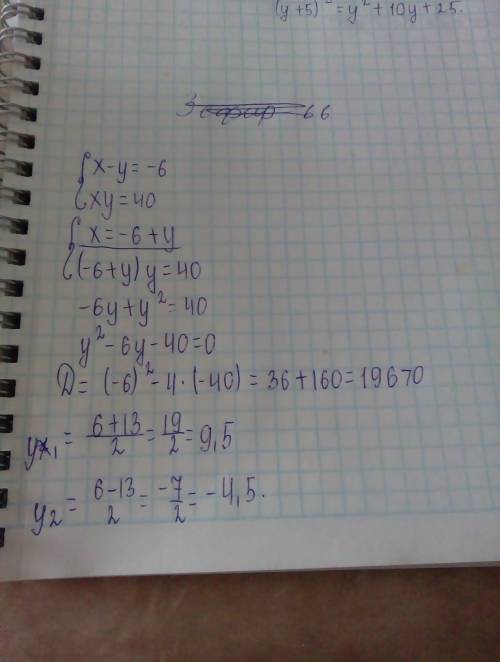 (y+5)² = y² + 10y + 25.
66
{ x-y = -6
{ xy = 40
{ x = -6 + y
{ (-6+y) y = 40
-6y + y² = 40
y² - 6y - 40 = 0
D = (-6)² - 4 · (-40) = 36 + 160 = 196 > 0
y₁ = 6+13/2 = 19/2 = 9,5
y₂ = 6-13/2 = -7/2 = -4,5.